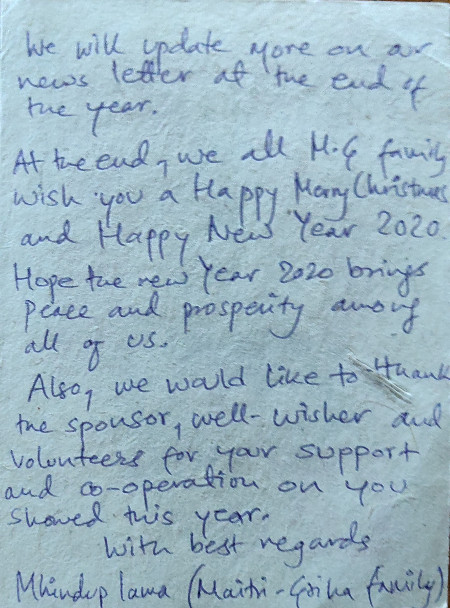 We will update more on our
news letter at the end of
the year.
At the end, we all M.G family
wish you a Happy Merry Christmas
and Happy New Year 2020.
Hope the new Year 2020 brings
peace and prosperity among
all of us.
Also, we would like to thank
the sponsor, well-wisher and
volunteers for your support
and co-operation on you
showed this year.
With best regards
Mhindup lama (Maitri-Griha family)